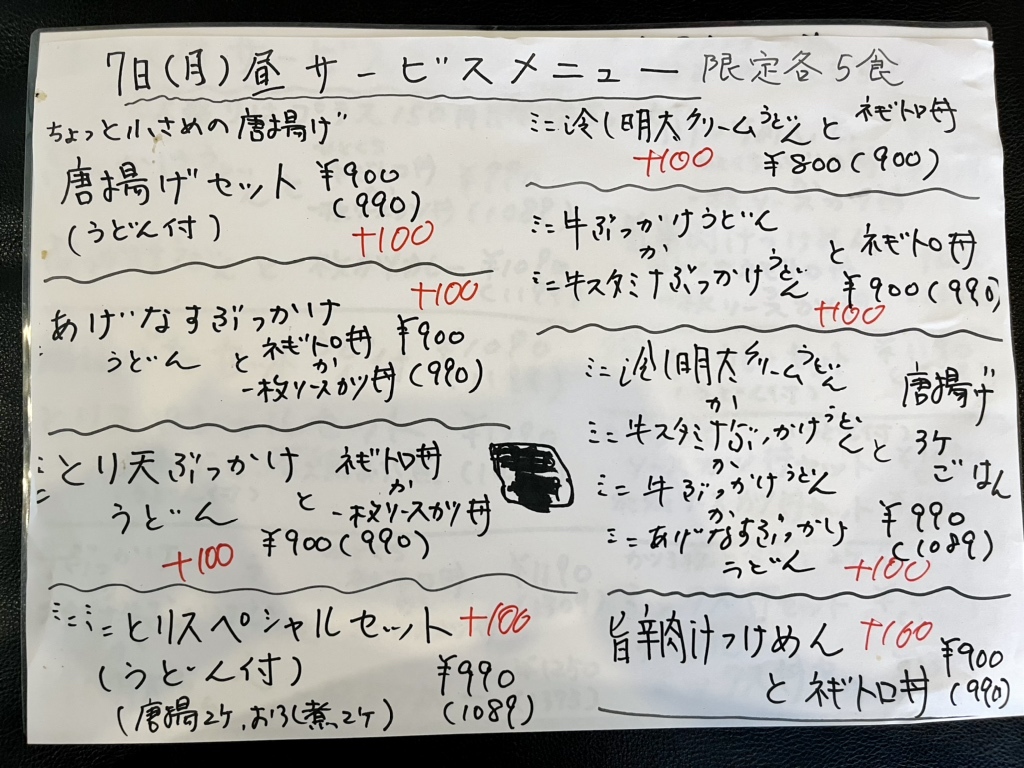 7日(月)昼サービスメニュー 限定各5食
ちょっと小さめの唐揚げ
唐揚げセット ¥900
(うどん付) (990)
+100
+100
あげなすぶっかけ
うどん と ネギトロ丼 ¥900
か
一枚ソースカツ丼 (990)
ミニとり天ぶっかけ ネギトロ丼
うどん と か
一枚ソースカツ丼
+100 ¥900(990)
ミニミニとりスペシャルセット +100
(うどん付) ¥990
(唐揚2ケ,おろし煮2ケ) (1089)
ミニ冷し明太クリームうどん と ネギトロ丼
+100 ¥800(900)
ミニ牛ぶっかけうどん
か と ネギトロ丼
ミニ牛スタミナぶっかけうどん ¥900(990)
+100
ミニ冷し明太クリームうどん 唐揚げ
か
ミニ牛スタミナぶっかけうどん と 3ケ
か ごはん
ミニ牛ぶっかけうどん
か ¥990
ミニあげなすぶっかけ (1089)
うどん +100
旨辛肉汁つけめん +100
¥900
と ネギトロ丼 (990)